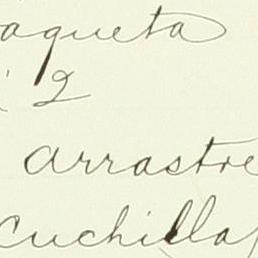 aqueta
2
arrastre
cuchilla